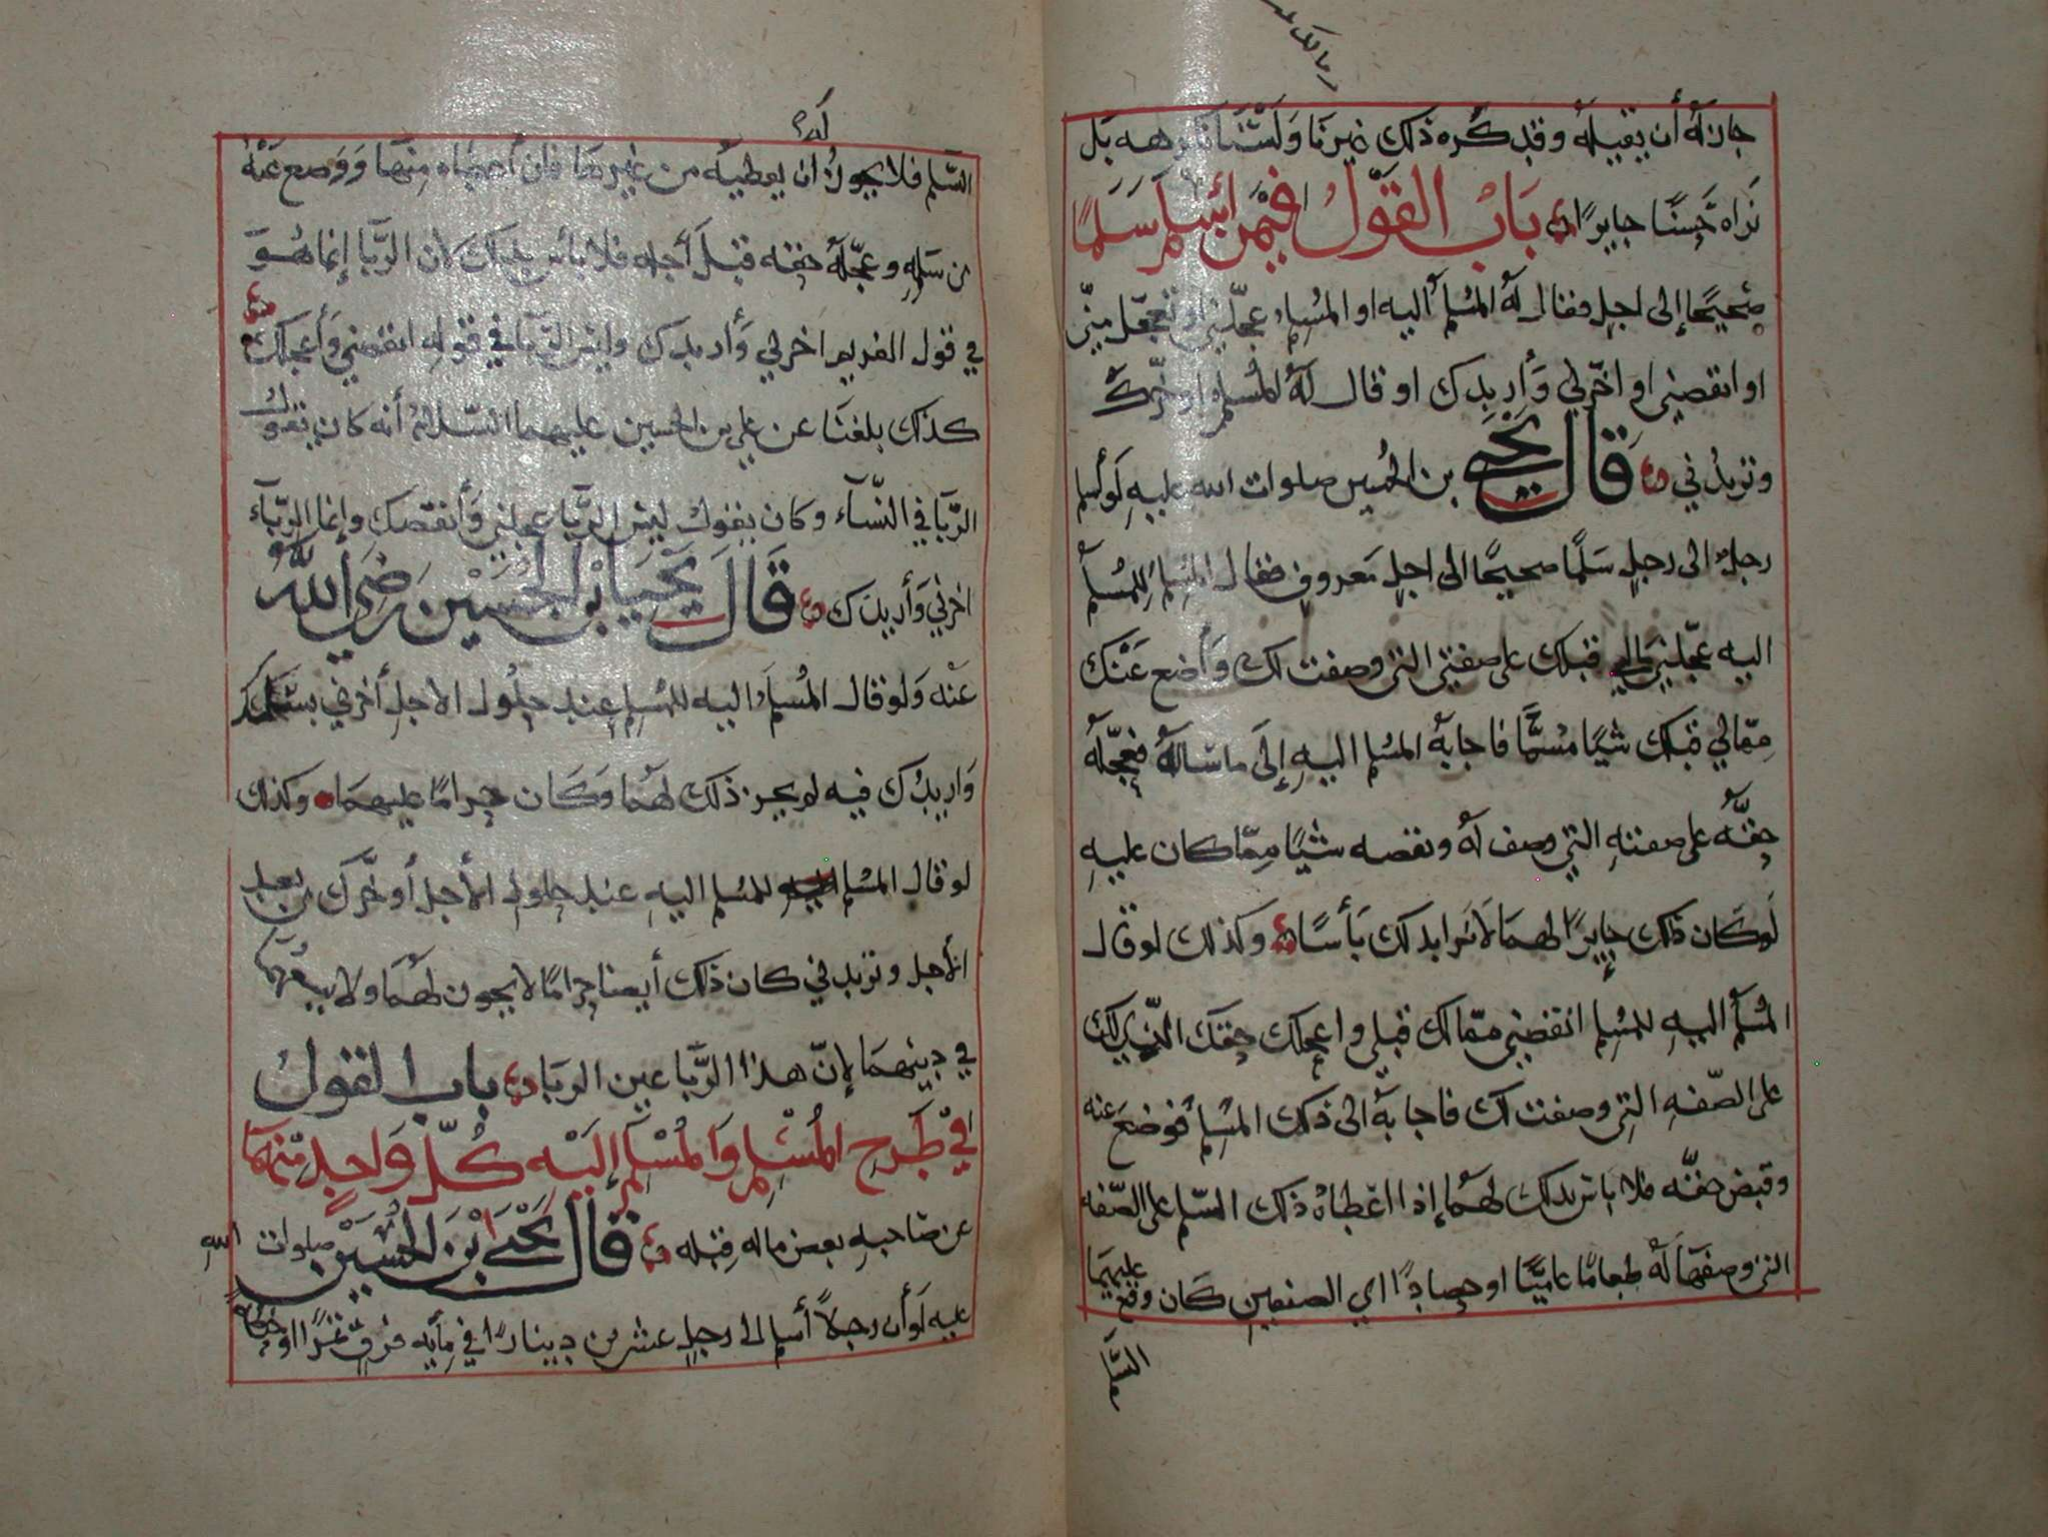 جاز له أن يقيله وقد كره ذلك غيرنا ولسنا نكرهه بل
نراه حسنًا جايزًا باب القول فيمن اسلم سلمًا
صحيحًا إلى اجل فقال له المسلم اليه او المسلم عجلني او تعجل مني
او انقصني او اخرني وأزيدك او قال له المسلم اوخرك
وتزيدني قال يحيى بن الحسين صلوات الله عليه لو أسلم
رجل الى رجل سلمًا صحيحًا الى اجل معروف فقال المسلم للمسلم
اليه عجلني مالي قبلك على صفتي التي وصفت لك وأضع عنك
ممالي قبلك شيًا مسمًا فاجابه المسلم اليه إلى ما سأله فعجله
حقه على صفته التي وصف له ونقصه شيًا مما كان عليه
لكان ذلك جايزًا لهما لا نرا بذلك بأسًا وكذلك لو قال
المسلم اليه للمسلم انقصني ممالك قبلي واعجلك حقك الذي لك
على الصفه التي وصفت لك فاجابه الى ذلك المسلم فوضع عنه
وقبض حقه فلا باس بذلك لهما إذا اعطاه ذلك السلم على الصفه
التي وصفها له طعامًا عاميًا او حصادًا اي الصنفين كان وقع عليهما
السلم
السلم فلا يجوز له أن يعطيه من غيرها فان أعطاه منها ووضع عنه
من سلمه وعجله حقه قبل أجله فلا بأس بذلك لأن الربا إنما هو
في قول الغريم اخرني وأزيدك وليس الربا في قوله انقصني وأعجلك
كذلك بلغنا عن علي بن الحسين عليهما السلام أنه كان يقول
الربا في النسآء وكان يقول ليس الربا عجلني وأنقصك وإنما الربآء
اخرني وأزيدك قال يحيا بن الحسين رضي الله
عنه ولو قال المسلم اليه للمسلم عند حلول الأجل أخرني بسلمك
وازيدك فيه لم يجز ذلك لهما وكان حرامًا عليهما وكذلك
لو قال المسلم للمسلم اليه عند حلول الأجل أوخرك من بعد
الأجل وتزيدني كان ذلك أيضا حرامًا لا يجوز لهما ولا يسعهما
في دينهما لإن هذا الربا عين الربا باب القول
في طرح المسلم والمسلم إليه كل واحد منهما
عن صاحبه بعض ماله قبله قال يحيى بن الحسين صلوات الله
عليه لو أن رجلاً أسلم الى رجل عشرين دينارًا في مأيه فرق